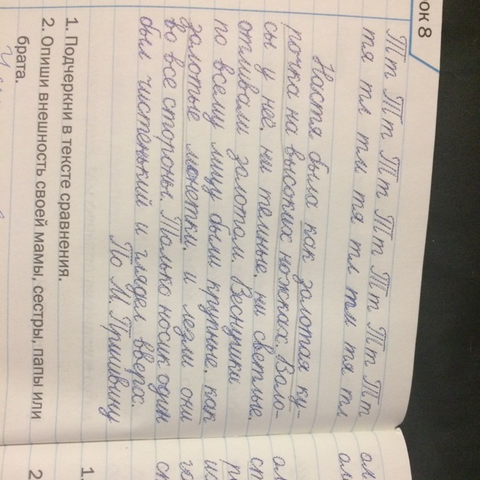 ок 8
Тт Тт Тт Тт Тт Тт Тт
тя тл тм тя тл тм тя тл
Настя была как золотая ку-
рочка на высоких ножках. Воло-
сы у неё, ни темные, ни светлые,
отливали золотом. Веснушки
по всему лицу были крупные, как
золотые монетки, и лезли они
во все стороны. Только носик один
был чистенький и глядел вверх.
По М. Пришвину
1. Подчеркни в тексте сравнения.
2. Опиши внешность своей мамы, сестры, папы или
брата.